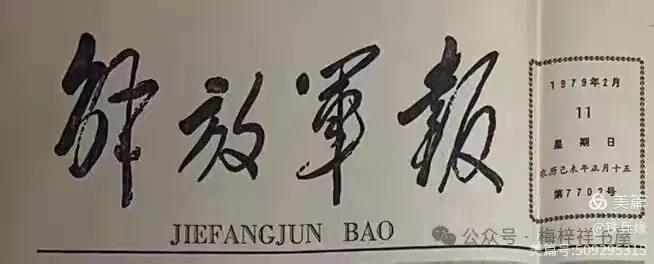 解放軍報
JIEFANGJUN BAO
1979年2月
11
星期日
农历己未年正月十五
第7702号
美篇
@铁兵缘
公众号·梅梓祥书屋
美篇号:509295315